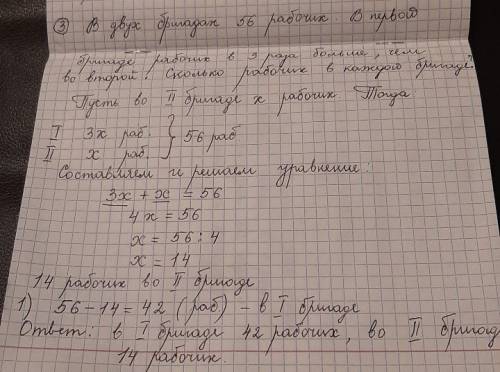 ③ В двух бригадах 56 рабочих. В первой
бригаде рабочих в 3 раза больше, чем
во второй. Сколько рабочих в каждой бригаде?
Пусть во II бригаде x рабочих. Тогда
I 3x раб. } 56 раб
II x раб.
Составляем и решаем уравнение:
3x + x = 56
4x = 56
x = 56 : 4
x = 14
14 рабочих во II бригаде
1) 56 - 14 = 42 (раб) - в I бригаде
Ответ: в I бригаде 42 рабочих, во II бригад
14 рабочих.